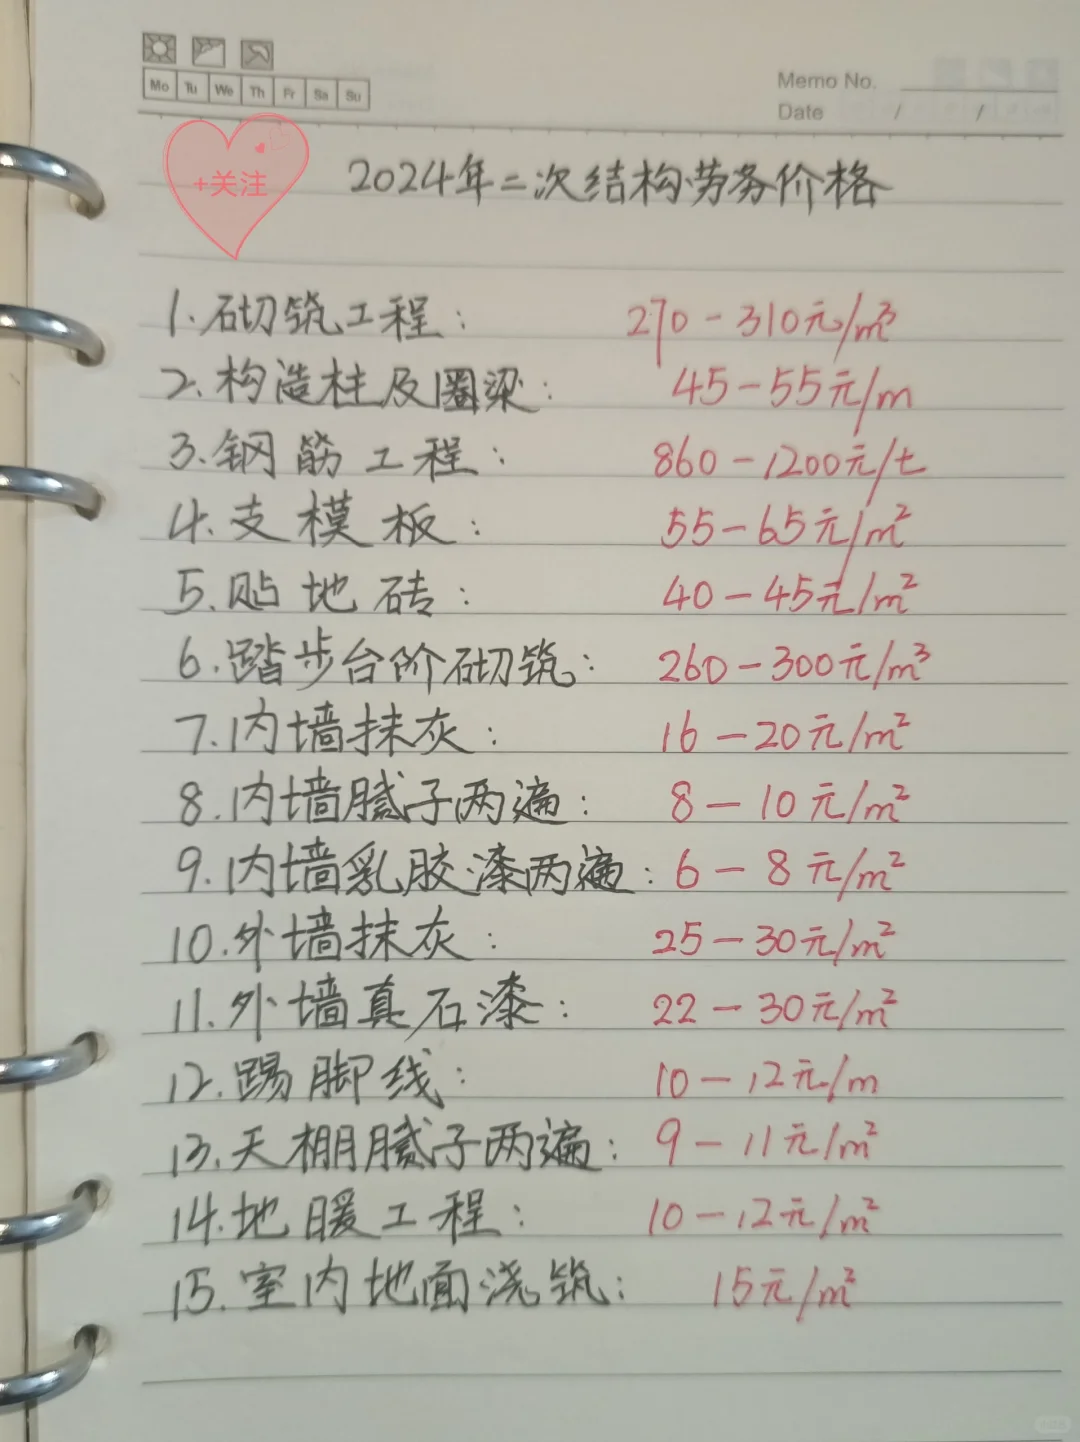 Mo Tu We Th Fr Sa Su
Memo No.
Date / /
+关注
2024年二次结构劳务价格
1.砌筑工程: 270-310元/m³
2.构造柱及圈梁: 45-55元/m
3.钢筋工程: 860-1200元/t
4.支模板: 55-65元/m²
5.贴地砖: 40-45元/m²
6.踏步台阶砌筑: 260-300元/m³
7.内墙抹灰: 16-20元/m²
8.内墙腻子两遍: 8-10元/m²
9.内墙乳胶漆两遍: 6-8元/m²
10.外墙抹灰: 25-30元/m²
11.外墙真石漆: 22-30元/m²
12.踢脚线: 10-12元/m
13.天棚腻子两遍: 9-11元/m²
14.地暖工程: 10-12元/m²
15.室内地面浇筑: 15元/m²